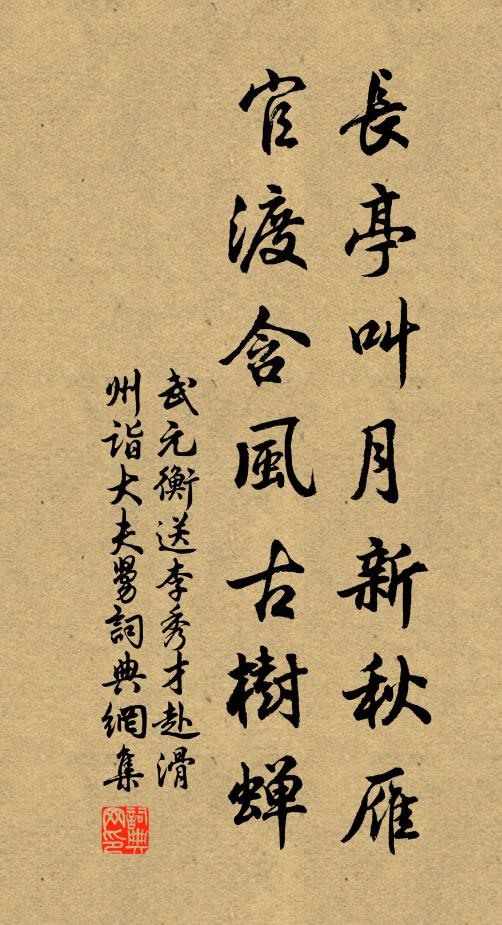 長亭叫月新秋雁
官渡含風古樹蝉
武元衡送李秀才赴滑
州詣大夫舅詞典網集
詞典
网印